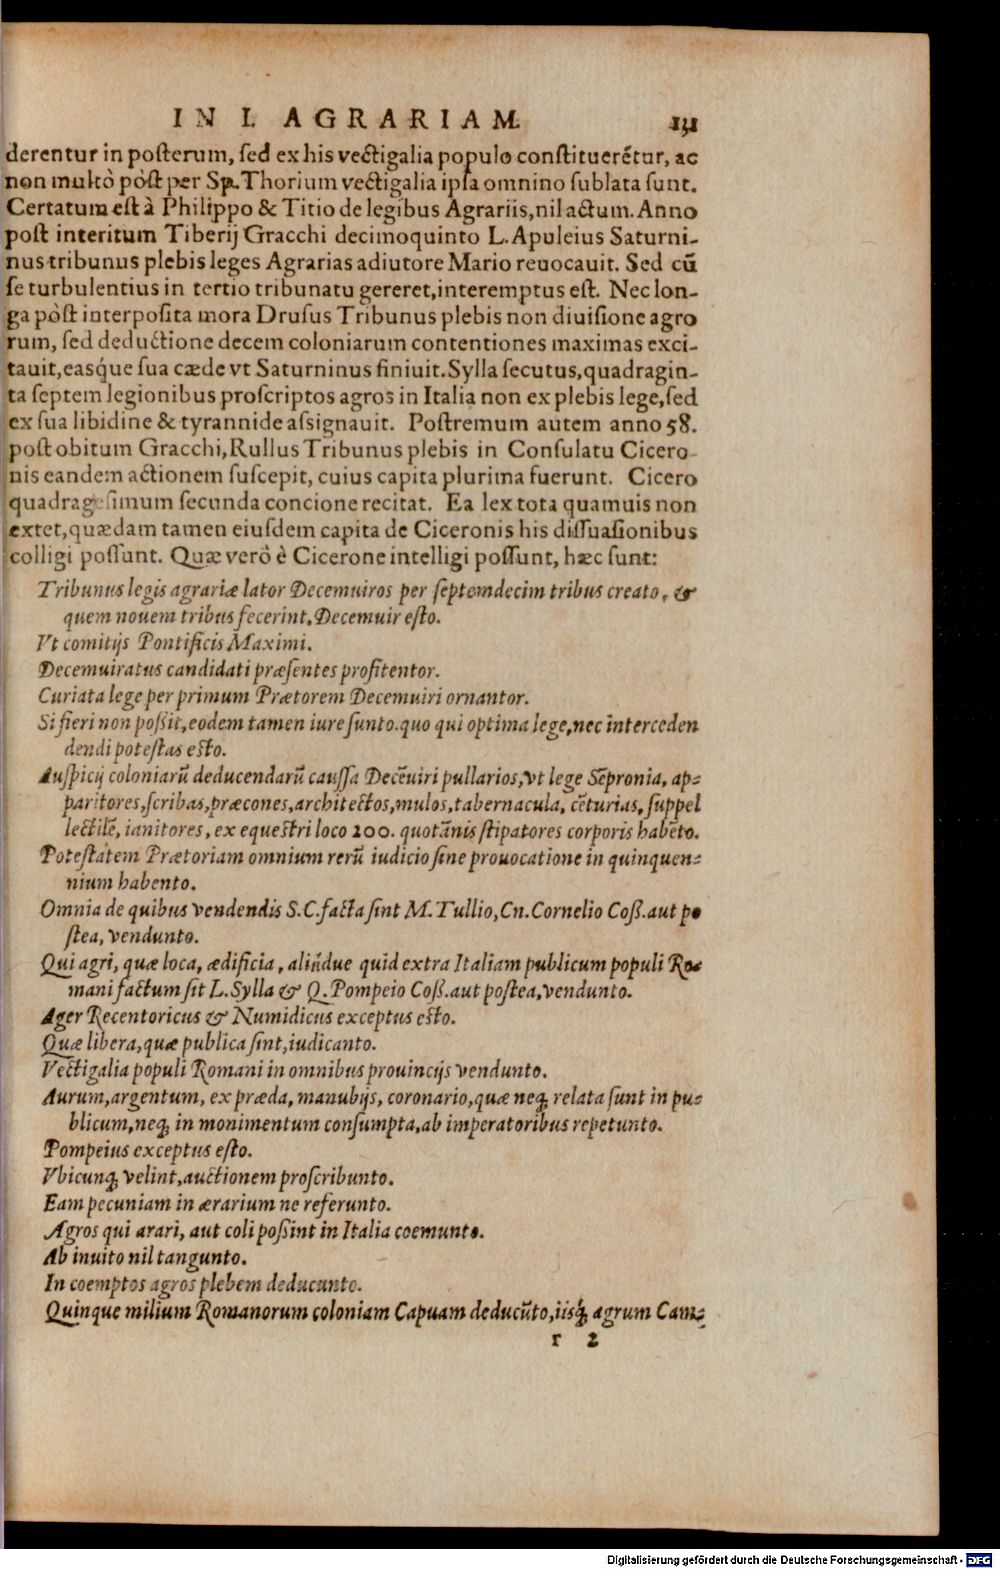 IN I. AGRARIAM. 131
derentur in posterum, sed ex his vectigalia populo constituerētur, ac
non multò pòst per Sp. Thorium vectigalia ipsa omnino sublata sunt.
Certatum est à Philippo & Titio de legibus Agrariis, nil actum. Anno
post interitum Tiberij Gracchi decimoquinto L. Apuleius Saturni-
nus tribunus plebis leges Agrarias adiutore Mario reuocauit. Sed cū
se turbulentius in tertio tribunatu gereret, interemptus est. Nec lon-
ga pòst interposita mora Drusus Tribunus plebis non diuisione agro
rum, sed deductione decem coloniarum contentiones maximas exci-
tauit, easq́ue sua cæde vt Saturninus finiuit. Sylla secutus, quadragin-
ta septem legionibus proscriptos agros in Italia non ex plebis lege, sed
ex sua libidine & tyrannide assignauit. Postremum autem anno 58.
post obitum Gracchi, Rullus Tribunus plebis in Consulatu Cicero-
nis eandem actionem suscepit, cuius capita plurima fuerunt. Cicero
quadragesimum secunda concione recitat. Ea lex tota quamuis non
extet, quædam tamen eiusdem capita de Ciceronis his dissuasionibus
colligi possunt. Quæ verò è Cicerone intelligi possunt, hæc sunt:
Tribunus legis agrariæ lator Decemuiros per septemdecim tribus creato, &
quem nouem tribus fecerint, Decemuir esto.
Vt comitijs Pontificis Maximi.
Decemuiratus candidati præsentes profitentor.
Curiata lege per primum Prætorem Decemuiri ornantor.
Si fieri non possit, eodem tamen iure sunto. quo qui optima lege, nec interceden
dendi potestas esto.
Auspicij coloniarū deducendarū caussa Decēuiri pullarios, vt lege Sēpronia, ap-
paritores, scribas, præcones, architectos, mulos, tabernacula, cēturias, suppel
lectilē, ianitores, ex equestri loco 200. quotānis stipatores corporis habēto.
Potestatem Prætoriam omnium rerū iudicio sine prouocatione in quinquen-
nium habento.
Omnia de quibus vendendis S.C. facta sint M. Tullio, Cn. Cornelio Coss. aut po
stea, vendunto.
Qui agri, quæ loca, ædificia, aliudue quid extra Italiam publicum populi Ro-
mani factum sit L. Sylla & Q. Pompeio Coss. aut postea, vendunto.
Ager Recentoricus & Numidicus exceptus esto.
Quæ libera, quæ publica sint, iudicanto.
Vectigalia populi Romani in omnibus prouincijs vendunto.
Aurum, argentum, ex præda, manubijs, coronario, quæ neq; relata sunt in pu-
blicum, neq; in monimentum consumpta, ab imperatoribus repetunto.
Pompeius exceptus esto.
Vbicunq; velint, auctionem proscribunto.
Eam pecuniam in ærarium ne referunto.
Agros qui arari, aut coli possint in Italia coemunto.
Ab inuito nil tangunto.
In coemptos agros plebem deducunto.
Quinque milium Romanorum coloniam Capuam deducūto, iisq́; agrum Cam-
r 2
Digitalisierung gefördert durch die Deutsche Forschungsgemeinschaft - DFG